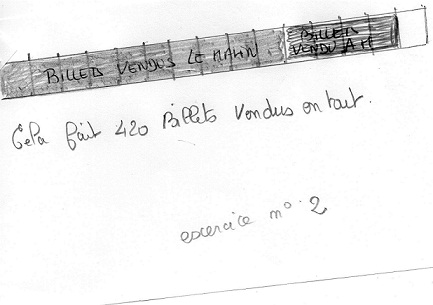 BILLETS VENDUS LE MATIN
BILLETS
VENDU AM
Cela fait 420 Billets Vendus en tout.
exercice n° 2